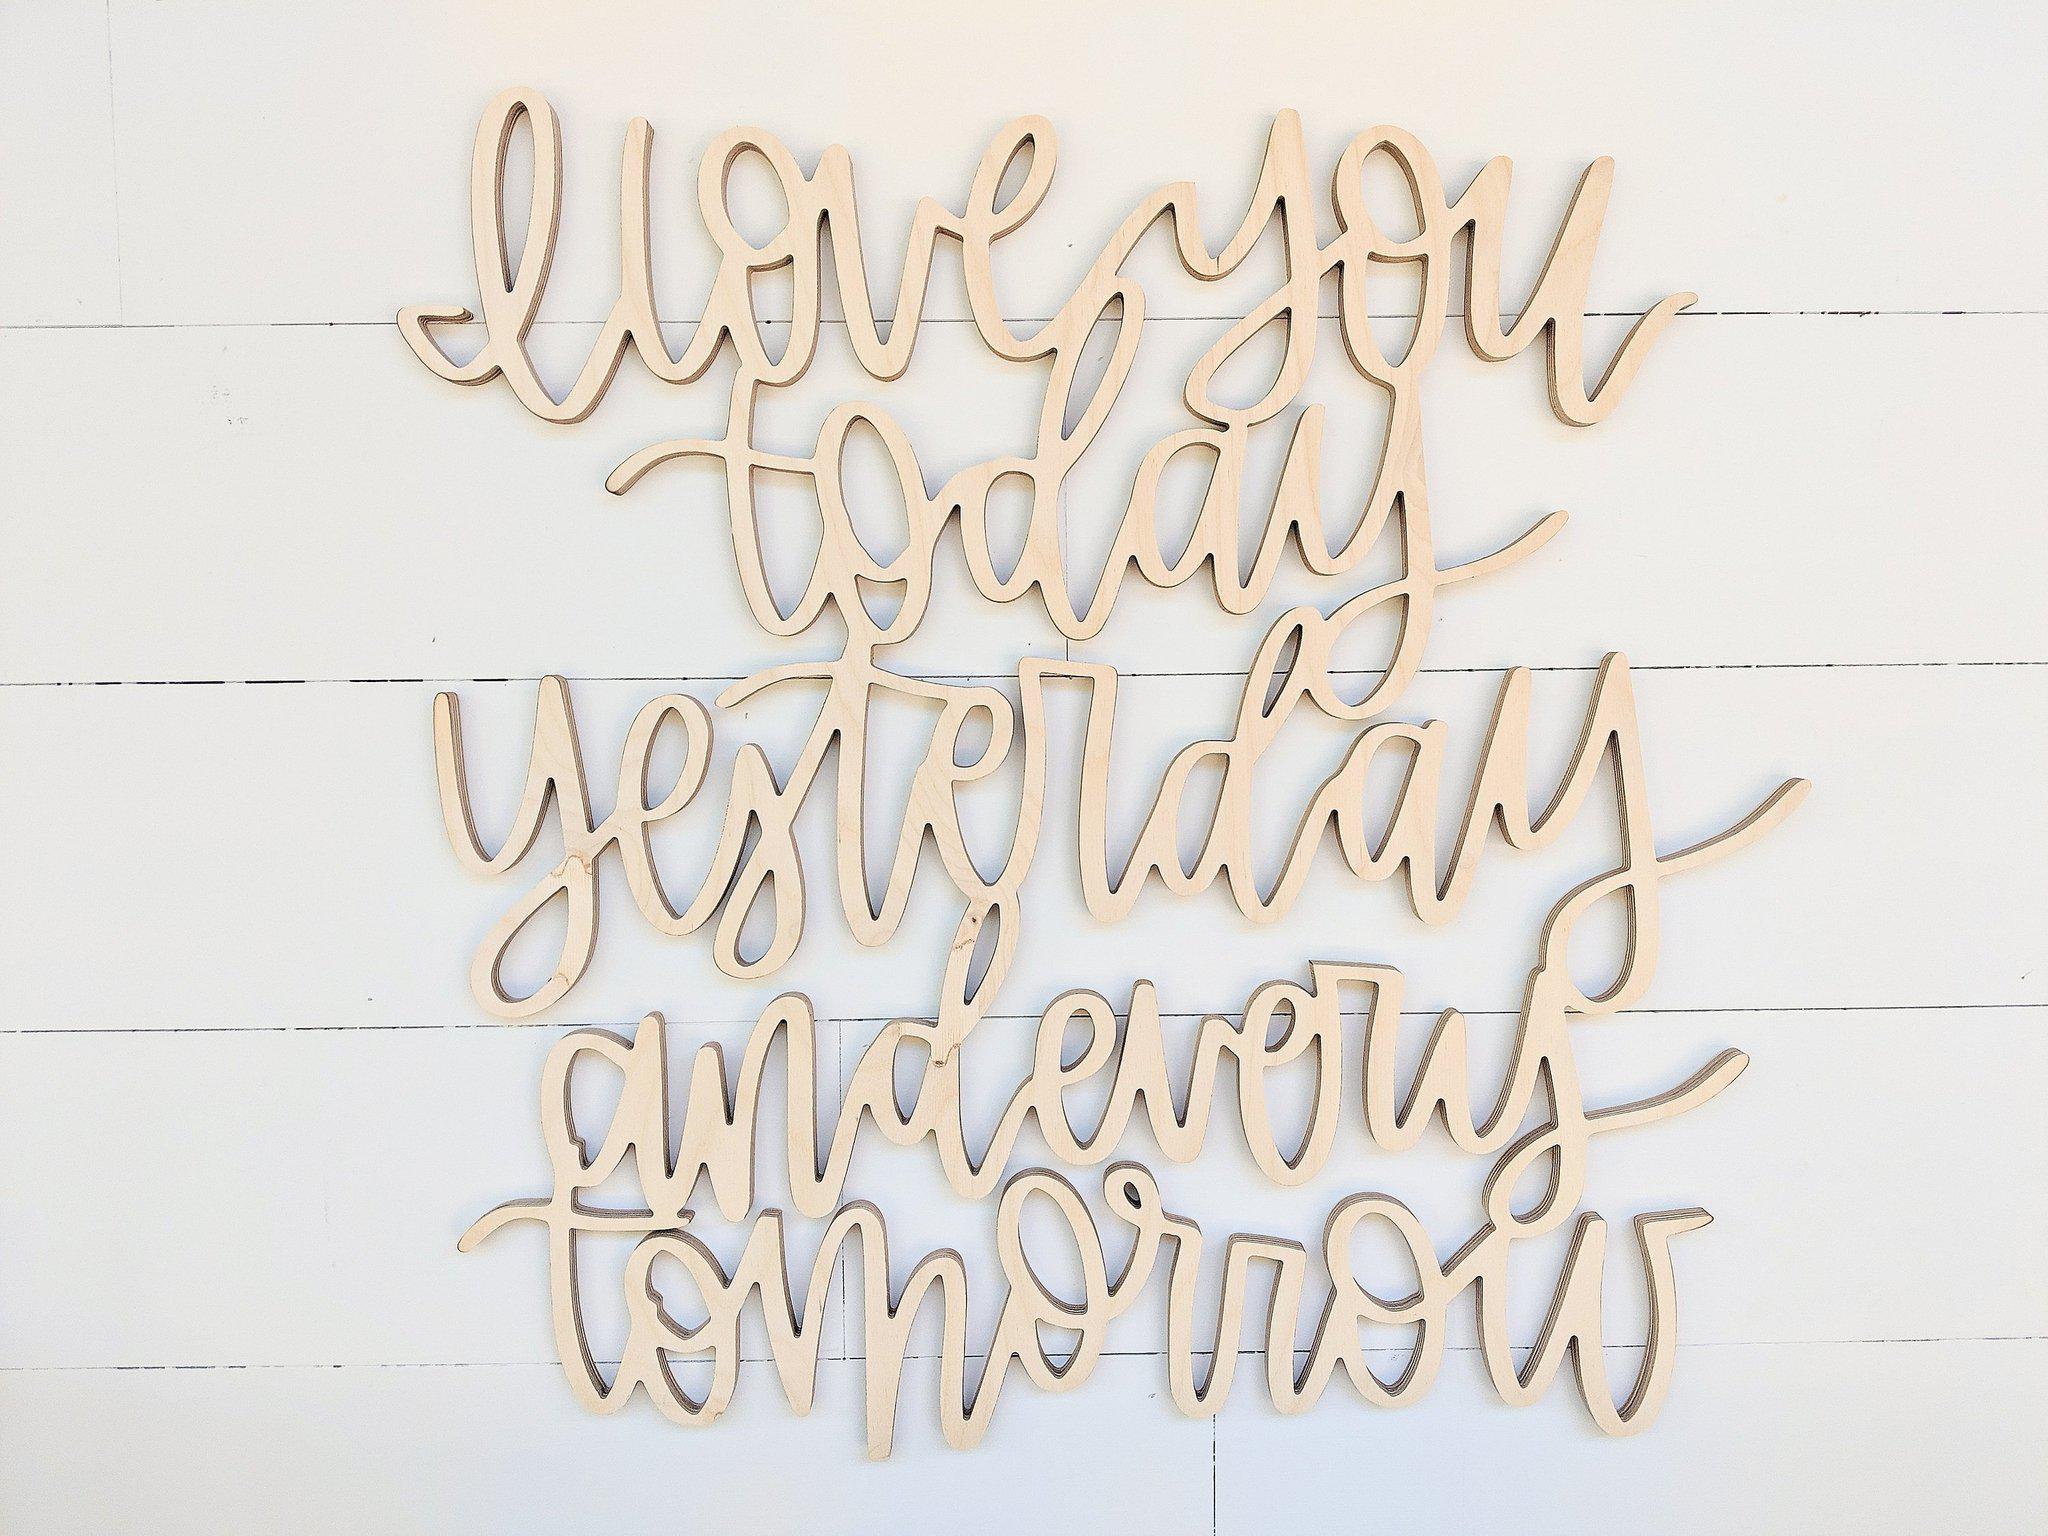 I love you
today
yesterday
and every
tomorrow